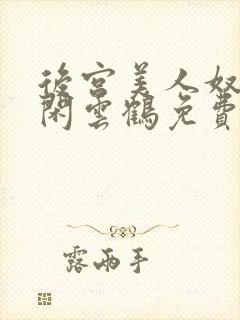 後宮美人奴
閑雲鶴免費
露兩手